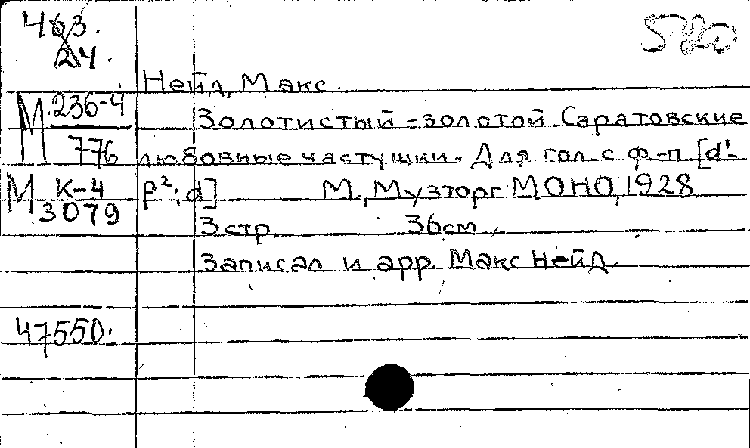 463.
24.
580
Нейд, Макс
М 236-4
776
Золотистый - золотой Саратовские
любовные частушки. Для гол. с ф-п. [d¹-
М К-4
3079
f²; d] М., Музторг МОНО, 1928
3 стр. 36 см.
Записал и арр. Макс Нейд
47550.